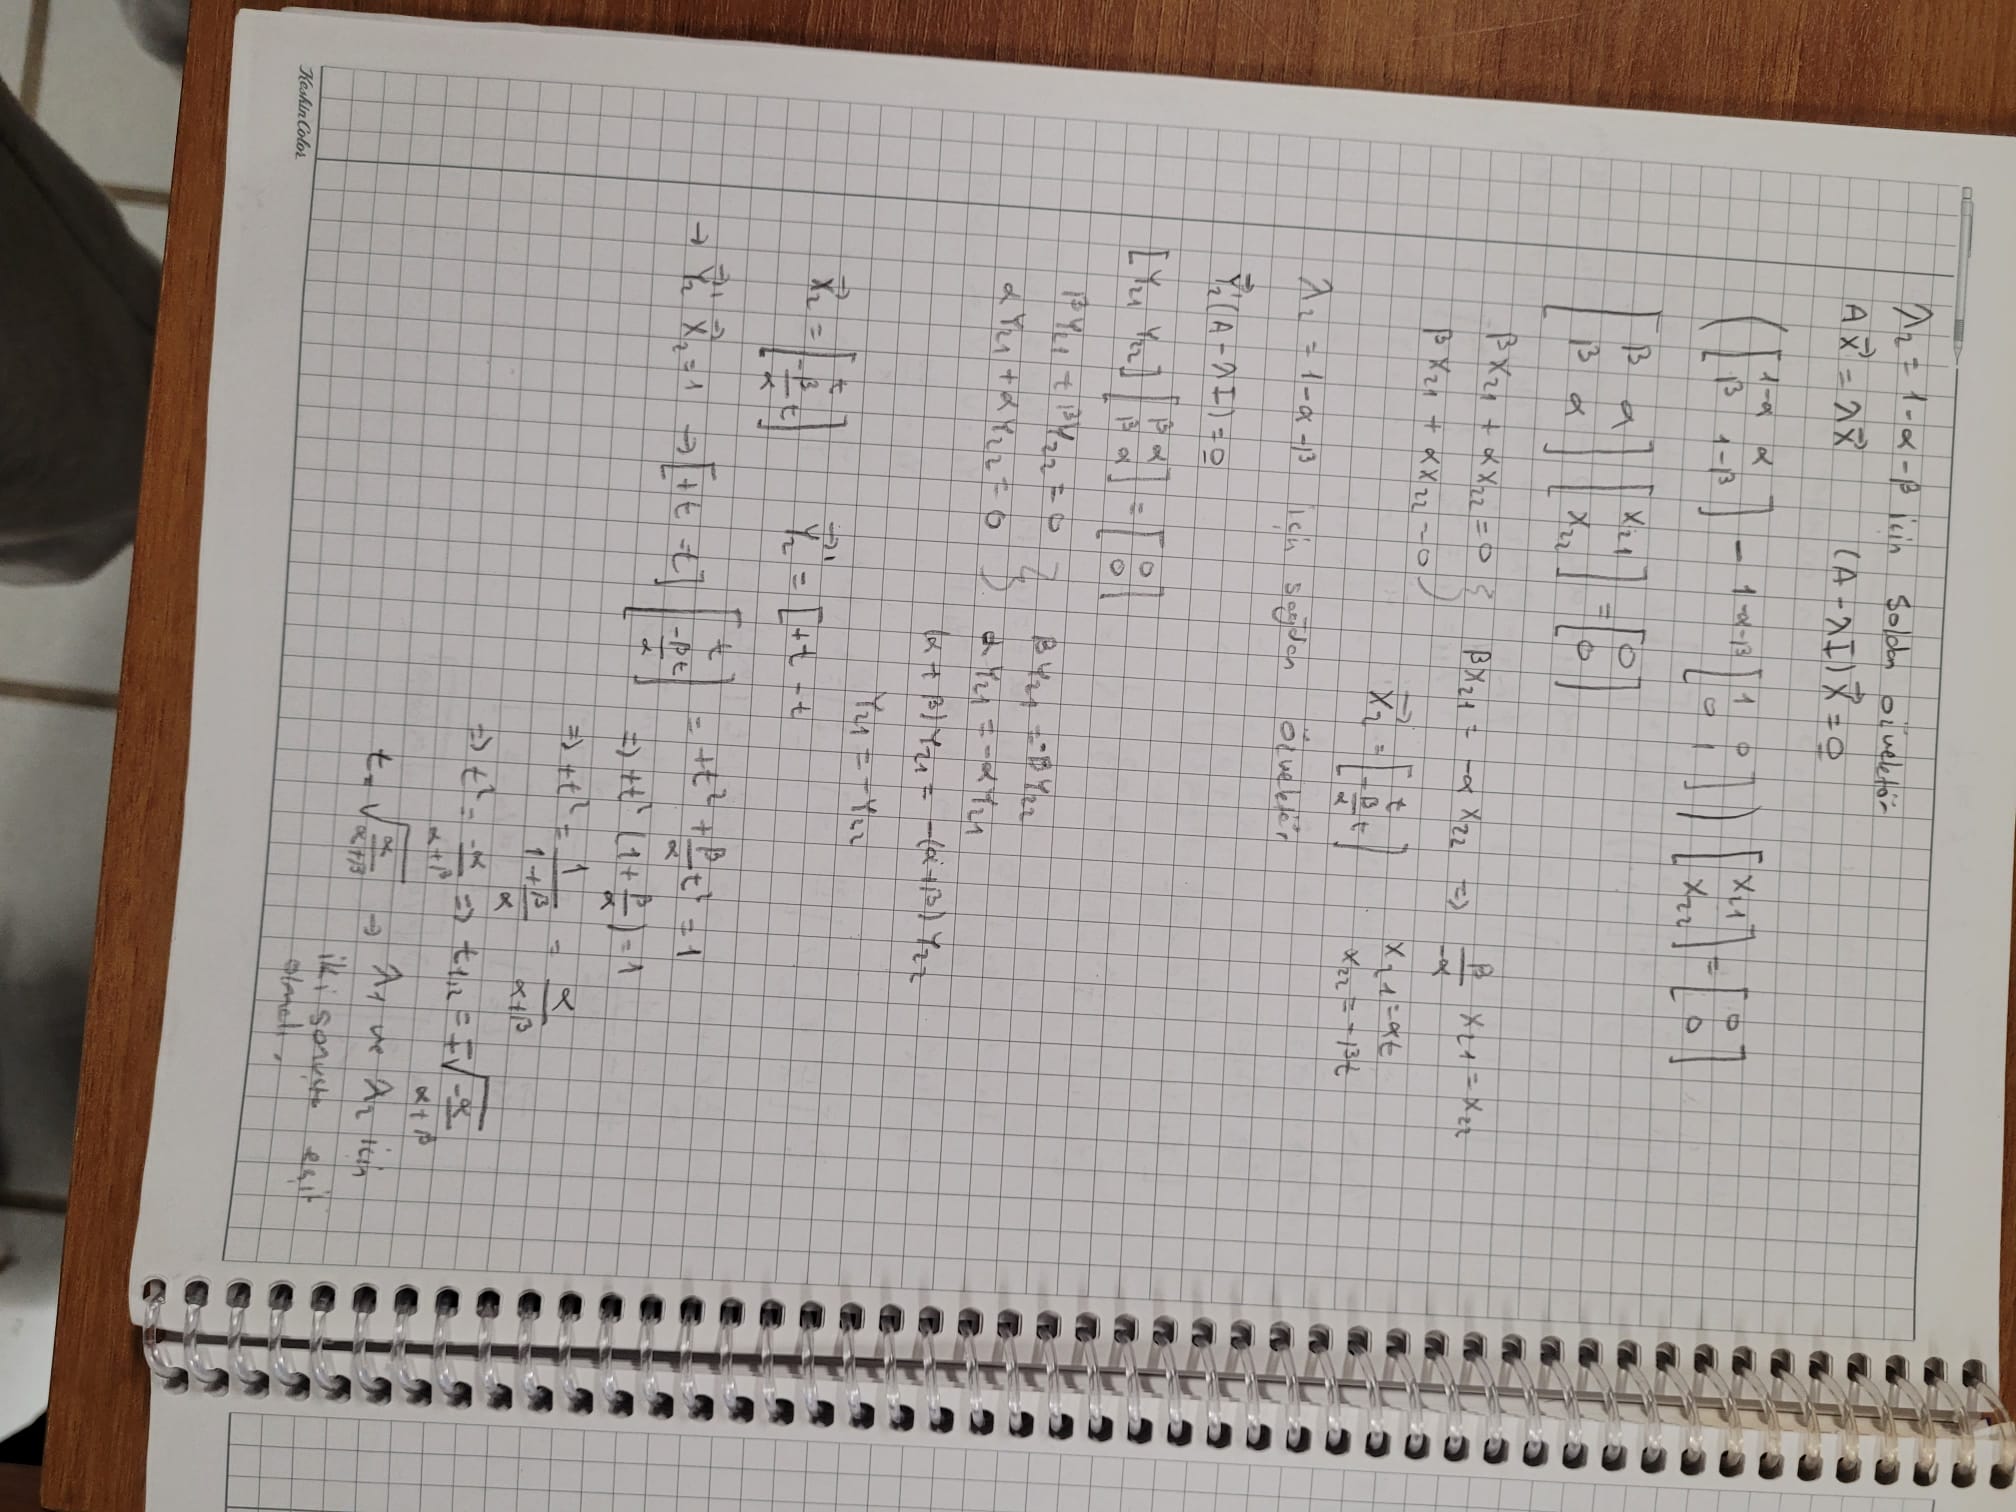 λ₂ = 1-α-β için Soldan özvektör
Ax⃗ = λx⃗ (A-λI)x⃗ = 0
([1-α α; β 1-β] - 1-α-β [1 0; 0 1]) [x₂₁; x₂₂] = [0; 0]
[β α; β α] [x₂₁; x₂₂] = [0; 0]
βx₂₁ + αx₂₂ = 0 } βx₂₁ = -αx₂₂ ⇒ β/-α x₂₁ = x₂₂
βx₂₁ + αx₂₂ = 0
x⃗₂ = [t; -β/α t] x₂₁ = αt
x₂₂ = -βt
λ₂ = 1-α-β için sağdan özvektör
y⃗₂'(A-λI) = 0
[y₂₁ y₂₂] [β α; β α] = [0; 0]
βy₂₁ + βy₂₂ = 0 } βy₂₁ = -βy₂₂
αy₂₁ + αy₂₂ = 0 αy₂₁ = -αy₂₁
(α+β)y₂₁ = -(α+β)y₂₂
y₂₁ = -y₂₂
x⃗₂ = [t; -β/α t] y⃗₂' = [+t -t
→ y⃗₂' x⃗₂ = 1 → [+t -t] [t; -βt/α] = +t² + β/α t² = 1
⇒ +t² (1+β/α) = 1
⇒ +t² = 1/(1+β/α) = α/(α+β)
⇒ t² = -α/(α+β) ⇒ t₁,₂ = ∓√(-α/(α+β))
t = √(α/(α+β)) → λ₁ ve λ₂ için
iki sonuçta eşit
olmalı.
KeskinColor